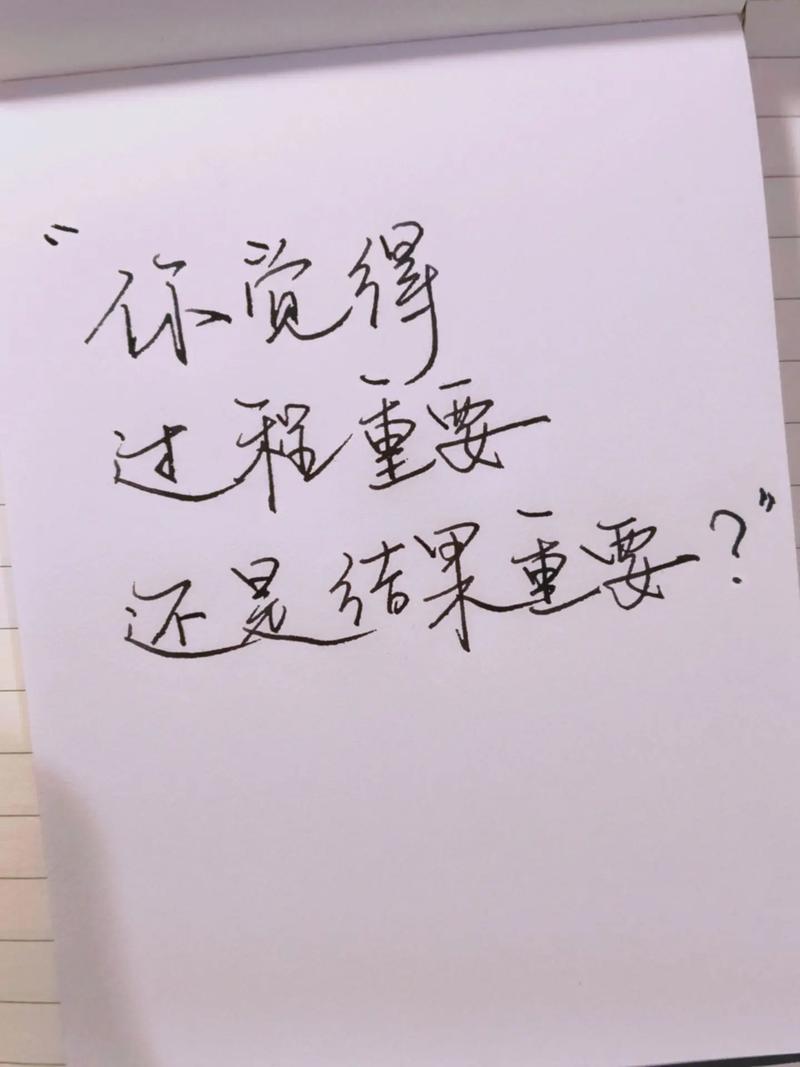 “你觉得
过程重要
还是结果重要？”